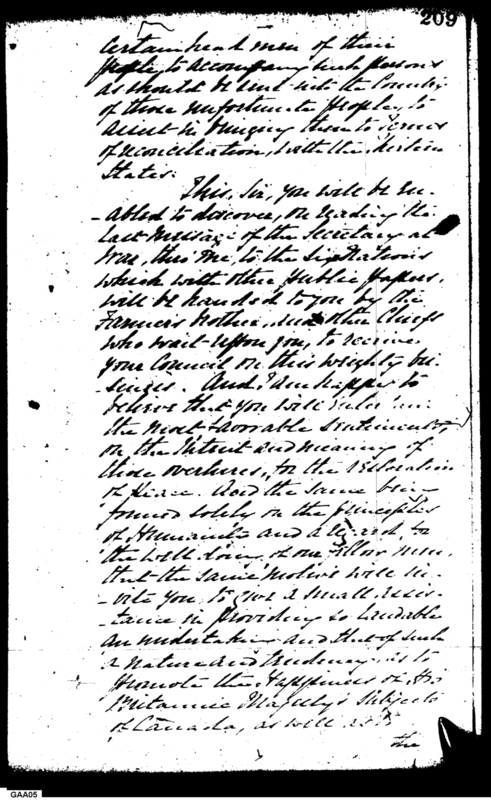 209
Certain head men of their
people, to accompany such persons
as should be sent into the Country
of those unfortunate people, to
assist in bringing them to terms
of reconciliation, with the
States.
This, Sir, you will be en-
-abled to discover, on reading the
last message of the Secretary at
War, thro' me, to the Six Nations
which with other public papers,
will be handed to you by the
Farmers brother, and other Chiefs
who wait upon you, to receive
your Council on this weighty bu-
-siness. And I am happy to
believe that you will
the most favorable sentiments,
on the Intent and meaning of
those overtures, for the restoration
of Peace. And the same being
formed solely on the principles
of Humanity and a regard, to
the well doing of our fellow men,
that the same motive will in-
-vite you to give a small assis-
-tance in providing so laudable
an undertaking and that of such
a nature and tendency as to
promote the Happiness of His
Britannic Majesty's Subjects
of Canada, as well as
the
GAA05